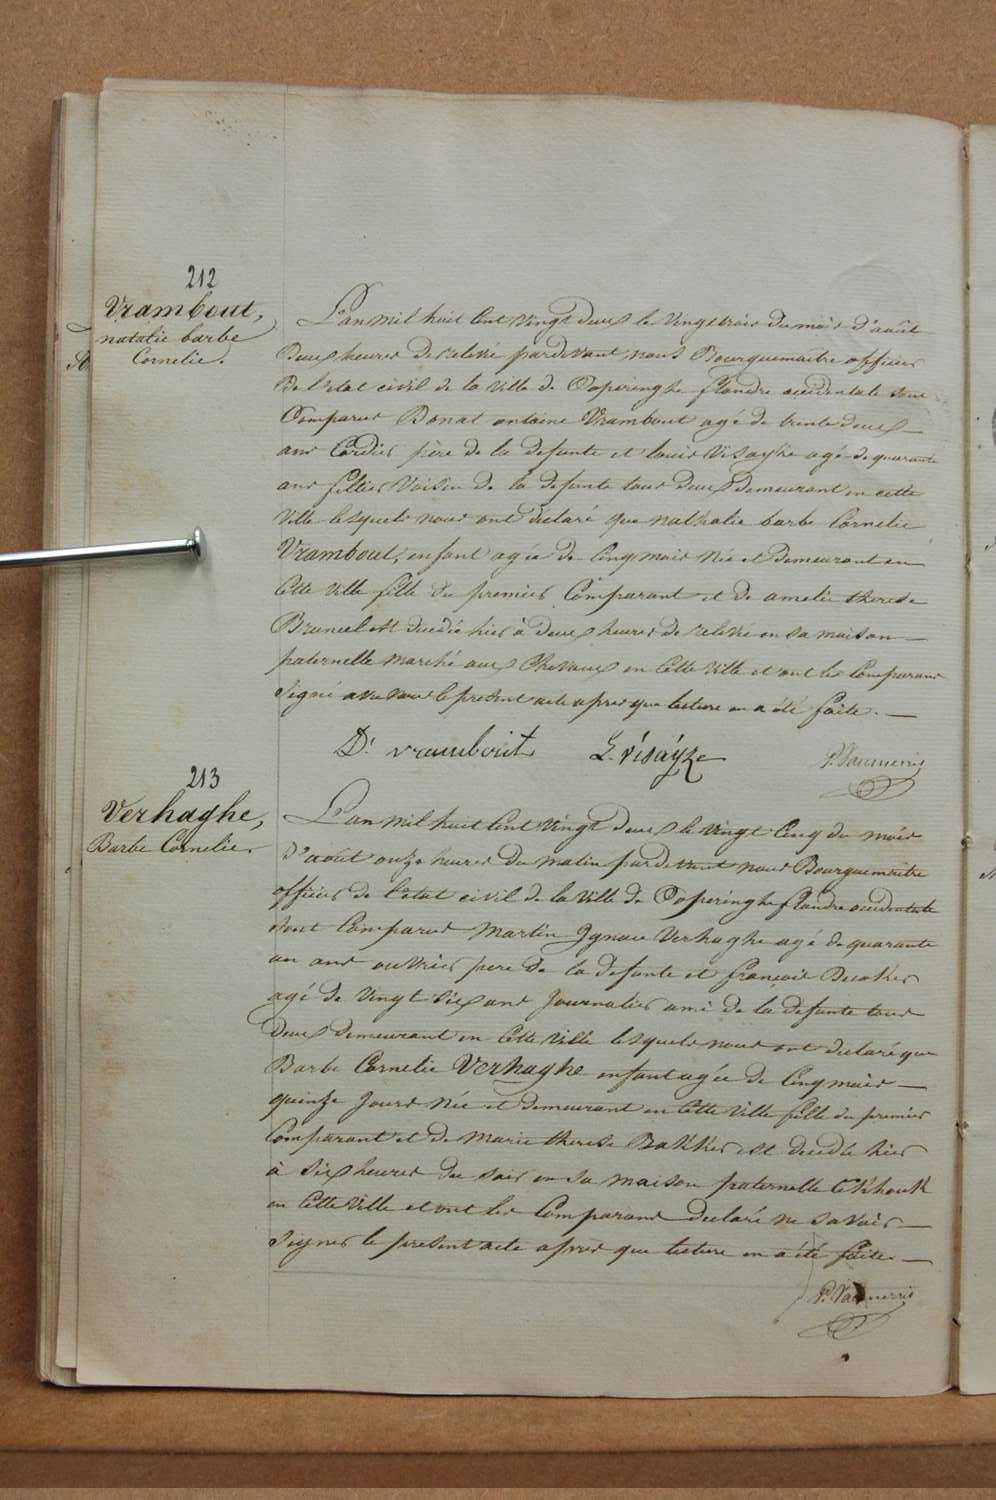 212
Vrambout,
natatie barbe
Cornelie.
L'an mil huit cent vingt deux le vingt trois du mois d'août
Deux heures de relevé pardevant nous Bourguemaitre officier
De l'etat civil de la ville de Poperinghe flandre occidentale sont
Comparus Donat antoine Vrambout agé de trente deux
ans Cordier père de la defunte et louis Visayze agé de quarante
ans fillier Voisin de la defunte tous deux demeurant en cette
Ville lesquels nous ont declaré que nathatie barbe Cornelie
Vrambout, enfant agée de Cinq mois Née et demeurant en
Cette Ville fille du premier Comparant et de amelie therese
Bruneel est decedée hier à deux heures de relevé en sa maison
paternelle marché aux Chevaux en Cette Ville et ont les Comparans
Signé avec nous le présent acte apres que lecture en a été faite.
D. vrambout L. visayze P. Vanmerris
213
Verhaghe,
Barbe Cornelie
L'an mil huit Cent Vingt Deux le Vingt Cinq du mois
D'août onze heures du matin pardevant nous Bourguemaitre
officier de l'etat civil de la Ville de Poperinghe flandre occidentale
sont Comparus Martin Ignace Verhaghe agé de quarante
un ans ouvrier pere de la defunte et françois Decoker
agé de Vingt Six ans Journalier ami de la defunte tous
Deux demeurant en Cette Ville lesquels nous ont declaré que
Barbe Cornelie Verhaghe enfant agée de Cinq mois
quinze Jours Née et demeurant en Cette Ville fille du premier
Comparant et de Marie therese Bakker est decedée hier
à Six heures du soir en sa maison paternelle
en Cette Ville et ont les Comparans declaré ne savoir
Signer le present acte apres que lecture en a été faite.
P. Vanmerris